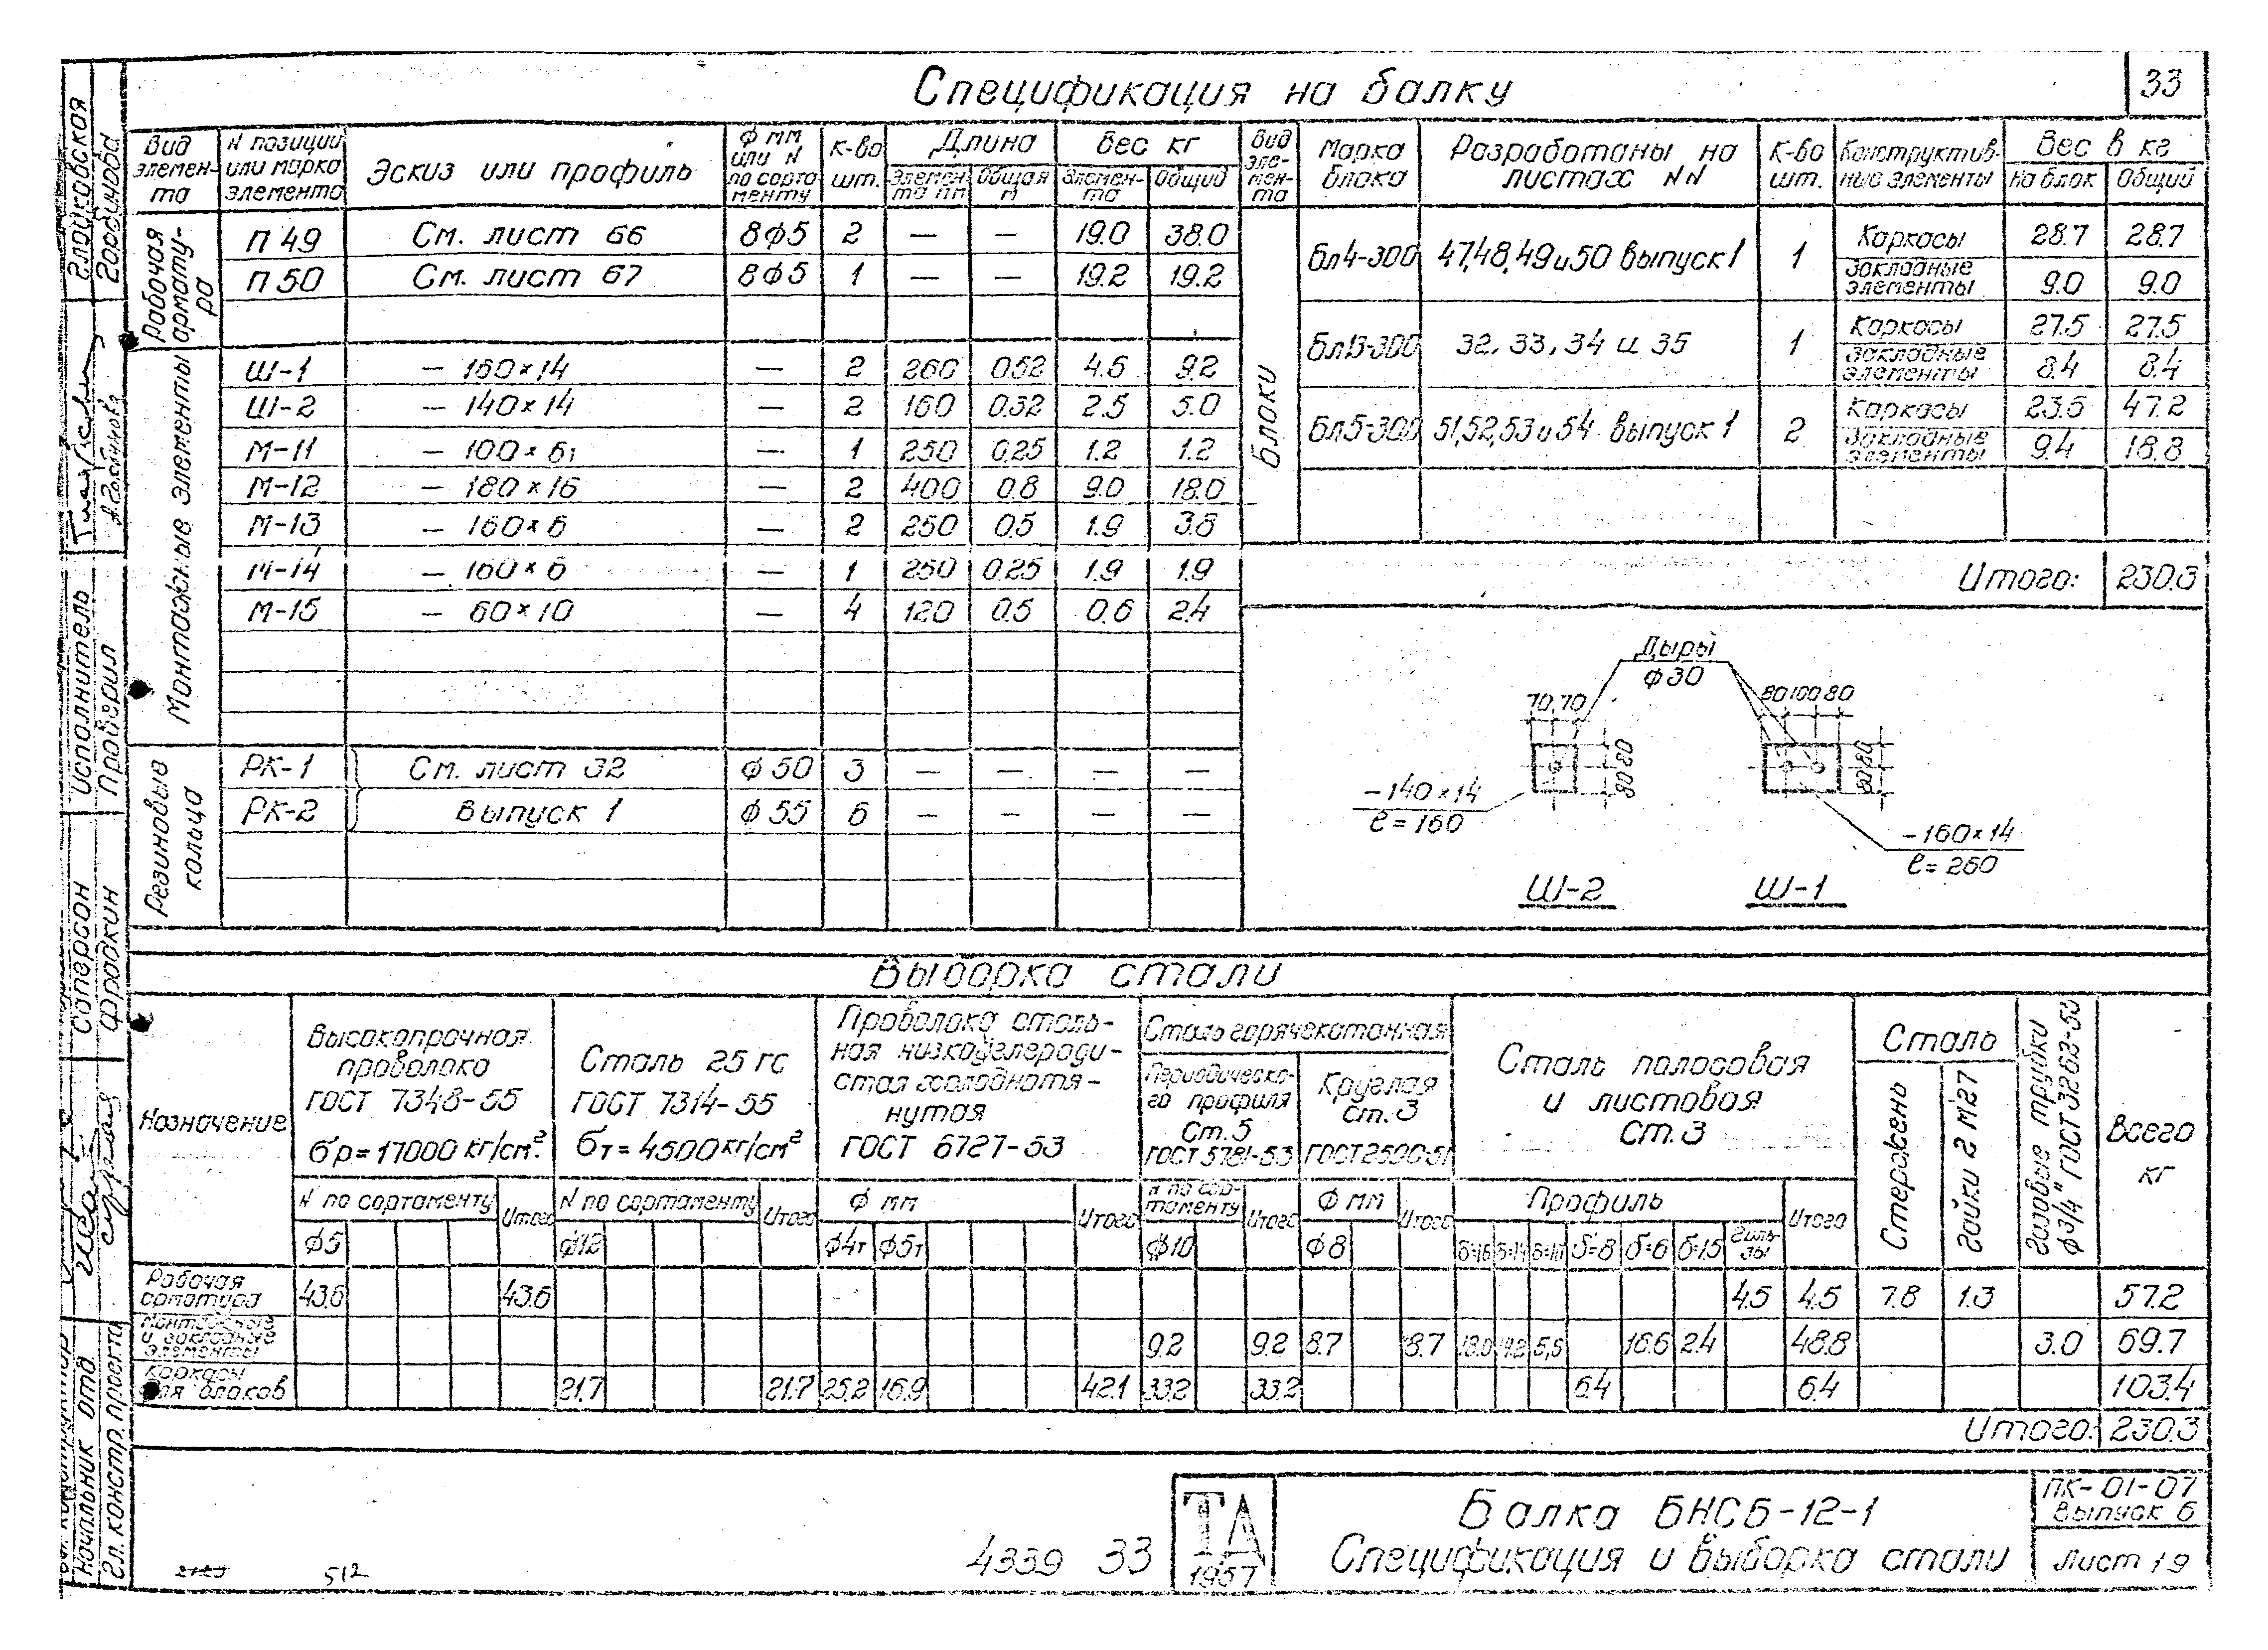 33
Спецификация на балку
Вид элемента | N позиции или марка элемента | Эскиз или профиль | ф мм или N по сортаменту | К-во шт. | Длина | Вес кг
Элемента мм | Общая м | Элемента | Общий
Рабочая арматура
П 49 | См. лист 66 | 8ф5 | 2 | — | — | 19.0 | 38.0
П 50 | См. лист 67 | 8ф5 | 1 | — | — | 19.2 | 19.2
Монтажные элементы
Ш-1 | – 160×14 | — | 2 | 260 | 0.52 | 4.6 | 9.2
Ш-2 | – 140×14 | — | 2 | 160 | 0.32 | 2.5 | 5.0
М-11 | – 100×6 | — | 1 | 250 | 0.25 | 1.2 | 1.2
М-12 | – 180×16 | — | 2 | 400 | 0.8 | 9.0 | 18.0
М-13 | – 160×6 | — | 2 | 250 | 0.5 | 1.9 | 3.8
М-14 | – 160×6 | — | 1 | 250 | 0.25 | 1.9 | 1.9
М-15 | – 60×10 | — | 4 | 120 | 0.5 | 0.6 | 2.4
Резиновые кольца
РК-1 | См. лист 32 | ф 50 | 3 | — | — | — | —
РК-2 | выпуск 1 | ф 55 | 6 | — | — | — | —
Вид элемента | Марка блока | Разработаны на листах NN | К-во шт. | Конструктивные элементы | Вес в кг
На блок | Общий
Блоки
Бл4-300 | 47,48,49 и 50 выпуск 1 | 1 | Каркасы | 28.7 | 28.7
Закладные элементы | 9.0 | 9.0
Бл13-300 | 32, 33, 34 и 35 | 1 | Каркасы | 27.5 | 27.5
Закладные элементы | 8.4 | 8.4
Бл5-300 | 51,52,53 и 54 выпуск 1 | 2 | Каркасы | 23.6 | 47.2
Закладные элементы | 9.4 | 18.8
Итого: 230.3
Дыры
ф30
70 70
80 100 80
80 80
80 80
– 140×14
ℓ = 160
– 160×14
ℓ = 260
Ш-2
Ш-1
Выборка стали
Назначение
Высокопрочная проволока ГОСТ 7348-55 σр = 17000 кг/см²
Сталь 25 гс ГОСТ 7314-55 σт = 4500 кг/см²
Проволока стальная низкоуглеродистая холоднотянутая ГОСТ 6727-53
Сталь горячекатанная
Периодического профиля Ст. 5 ГОСТ 5781-53
Круглая Ст. 3 ГОСТ 2590-51
Сталь полосовая и листовая Ст. 3
Сталь
Стержень
Гайки 2 М27
Газовые трубки ф 3/4" ГОСТ 3262-55
Всего кг
N по сортаменту | Итого | N по сортаменту | Итого | ф мм | Итого | N по сортаменту | Итого | ф мм | Итого | Профиль | Итого
ф5 | ф12 | ф4т | ф5т | ф10 | ф8 | δ=16 | δ=14 | δ=10 | δ=8 | δ=6 | δ=1.5 | Гильзы
Рабочая арматура | 43.6 | 43.6 | 4.5 | 4.5 | 7.8 | 1.3 | 57.2
Монтажные и закладные элементы | 9.2 | 9.2 | 8.7 | 8.7 | 18.0 | 5,5 | 16.6 | 2.4 | 48.8 | 3.0 | 69.7
Каркасы для блоков | 21.7 | 21.7 | 25.2 | 16.9 | 42.1 | 33.2 | 33.2 | 6.4 | 6.4 | 103.4
Итого: 230.3
ТД
1957
Балка БНСБ-12-1
Спецификация и выборка стали
ПК-01-07
Выпуск 6
Лист 19
4339 33
512
Исполнитель
Проверил
Горбунова
Саперсон
Фрадкин
Начальник отд.
Гл. констр. проекта